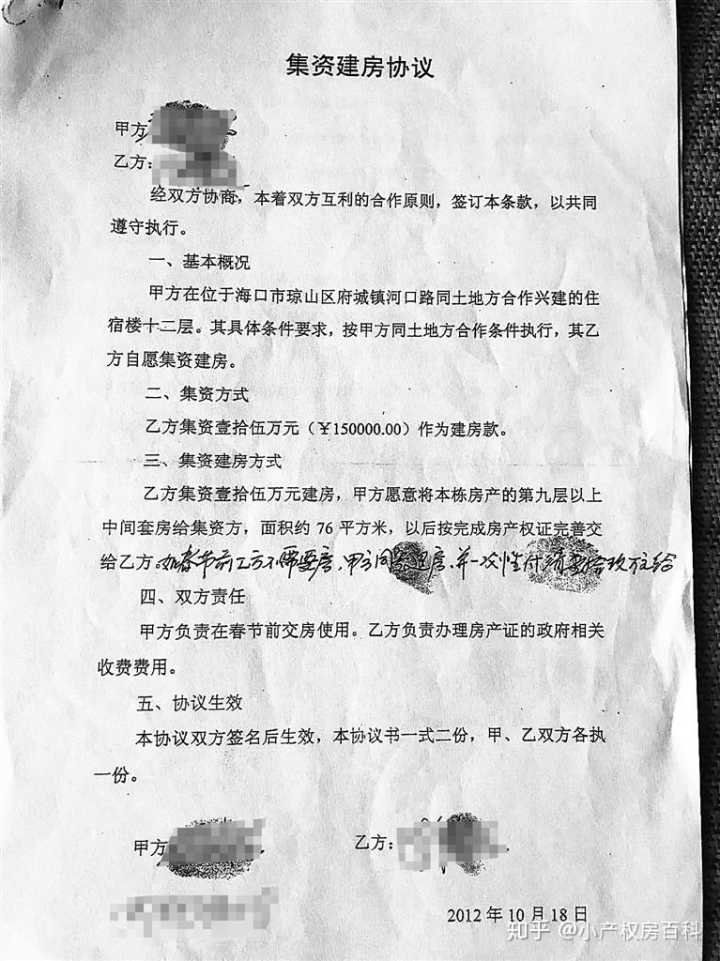 集资建房协议
甲方
乙方：
经双方协商，本着双方互利的合作原则，签订本条款，以共同
遵守执行。
一、基本概况
甲方在位于海口市琼山区府城镇河口路同土地方合作兴建的住
宿楼十二层。其具体条件要求，按甲方同土地方合作条件执行，其乙
方自愿集资建房。
二、集资方式
乙方集资壹拾伍万元（￥150000.00）作为建房款。
三、集资建房方式
乙方集资壹拾伍万元建房，甲方愿意将本栋房产的第九层以上
中间套房给集资方，面积约 76 平方米，以后按完成房产权证完善交
给乙方。如春节前乙方不需要房，甲方同意退房，并一次性付清拾玖万元给
四、双方责任
甲方负责在春节前交房使用。乙方负责办理房产证的政府相关
收费费用。
五、协议生效
本协议双方签名后生效，本协议书一式二份，甲、乙双方各执
一份。
甲方
乙方：
2012 年 10 月 18 日
知乎 @小产权房百科